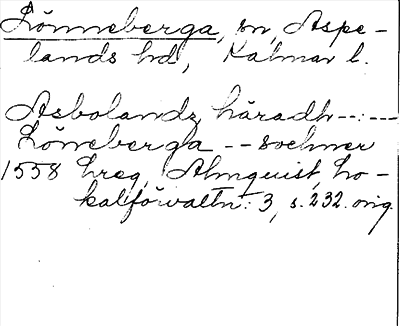 Lönneberga, sn, Aspe-
lands hd, Kalmar l.
Asbolandz häradh--:---
Löneberga -- sochner
1558 Lreg, Almquist, Lo-
kalförvaltn: 3, s. 232. orig.